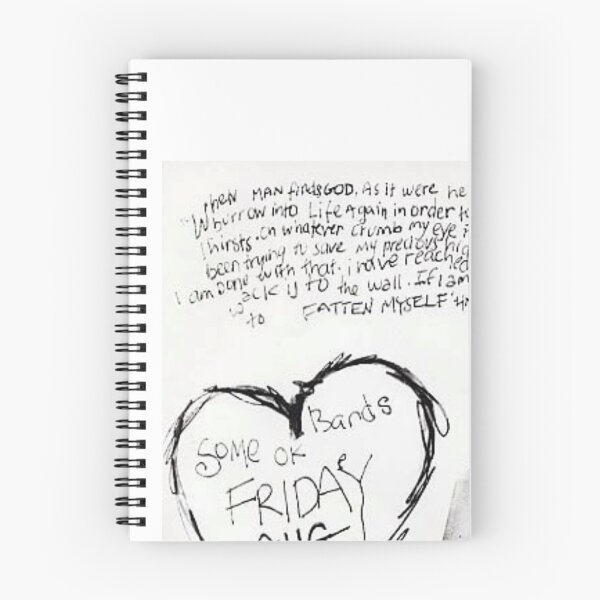 "When MAN findSGOD. As it were he
burrow into Life Again in order to
thirsts. On whatever crumb my eye
been trying to save my precious hi
I am Done with that. i have reached
to the wall. If I am
to FATTEN MYSELF
Bands
SOME OK
FRIDAY
AUG